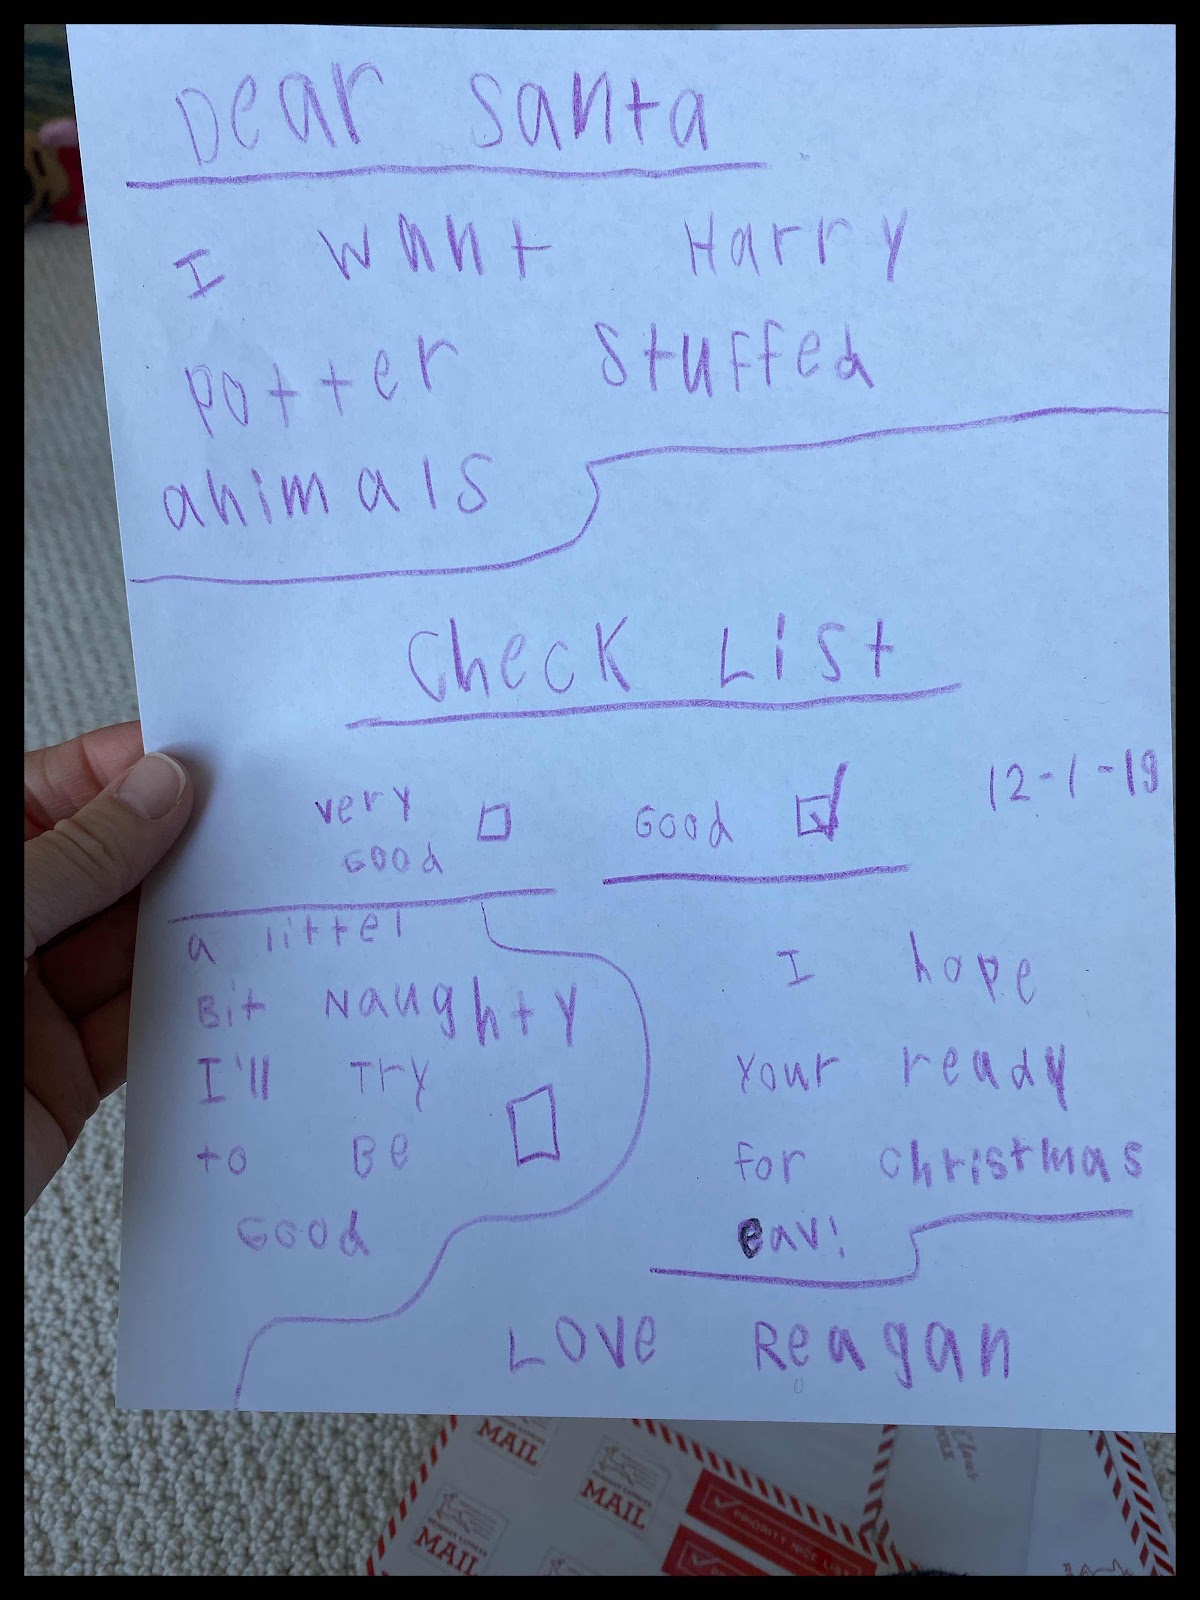 Dear Santa
I want Harry
Potter Stuffed
animals
Check List
very
Good
Good
12-1-19
a littel
Bit Naughty
I'll Try
to Be
Good
I hope
Your ready
for christmas
eav!
Love Reagan
MAIL
MAIL
MAIL
PRIORITY NICE LIST